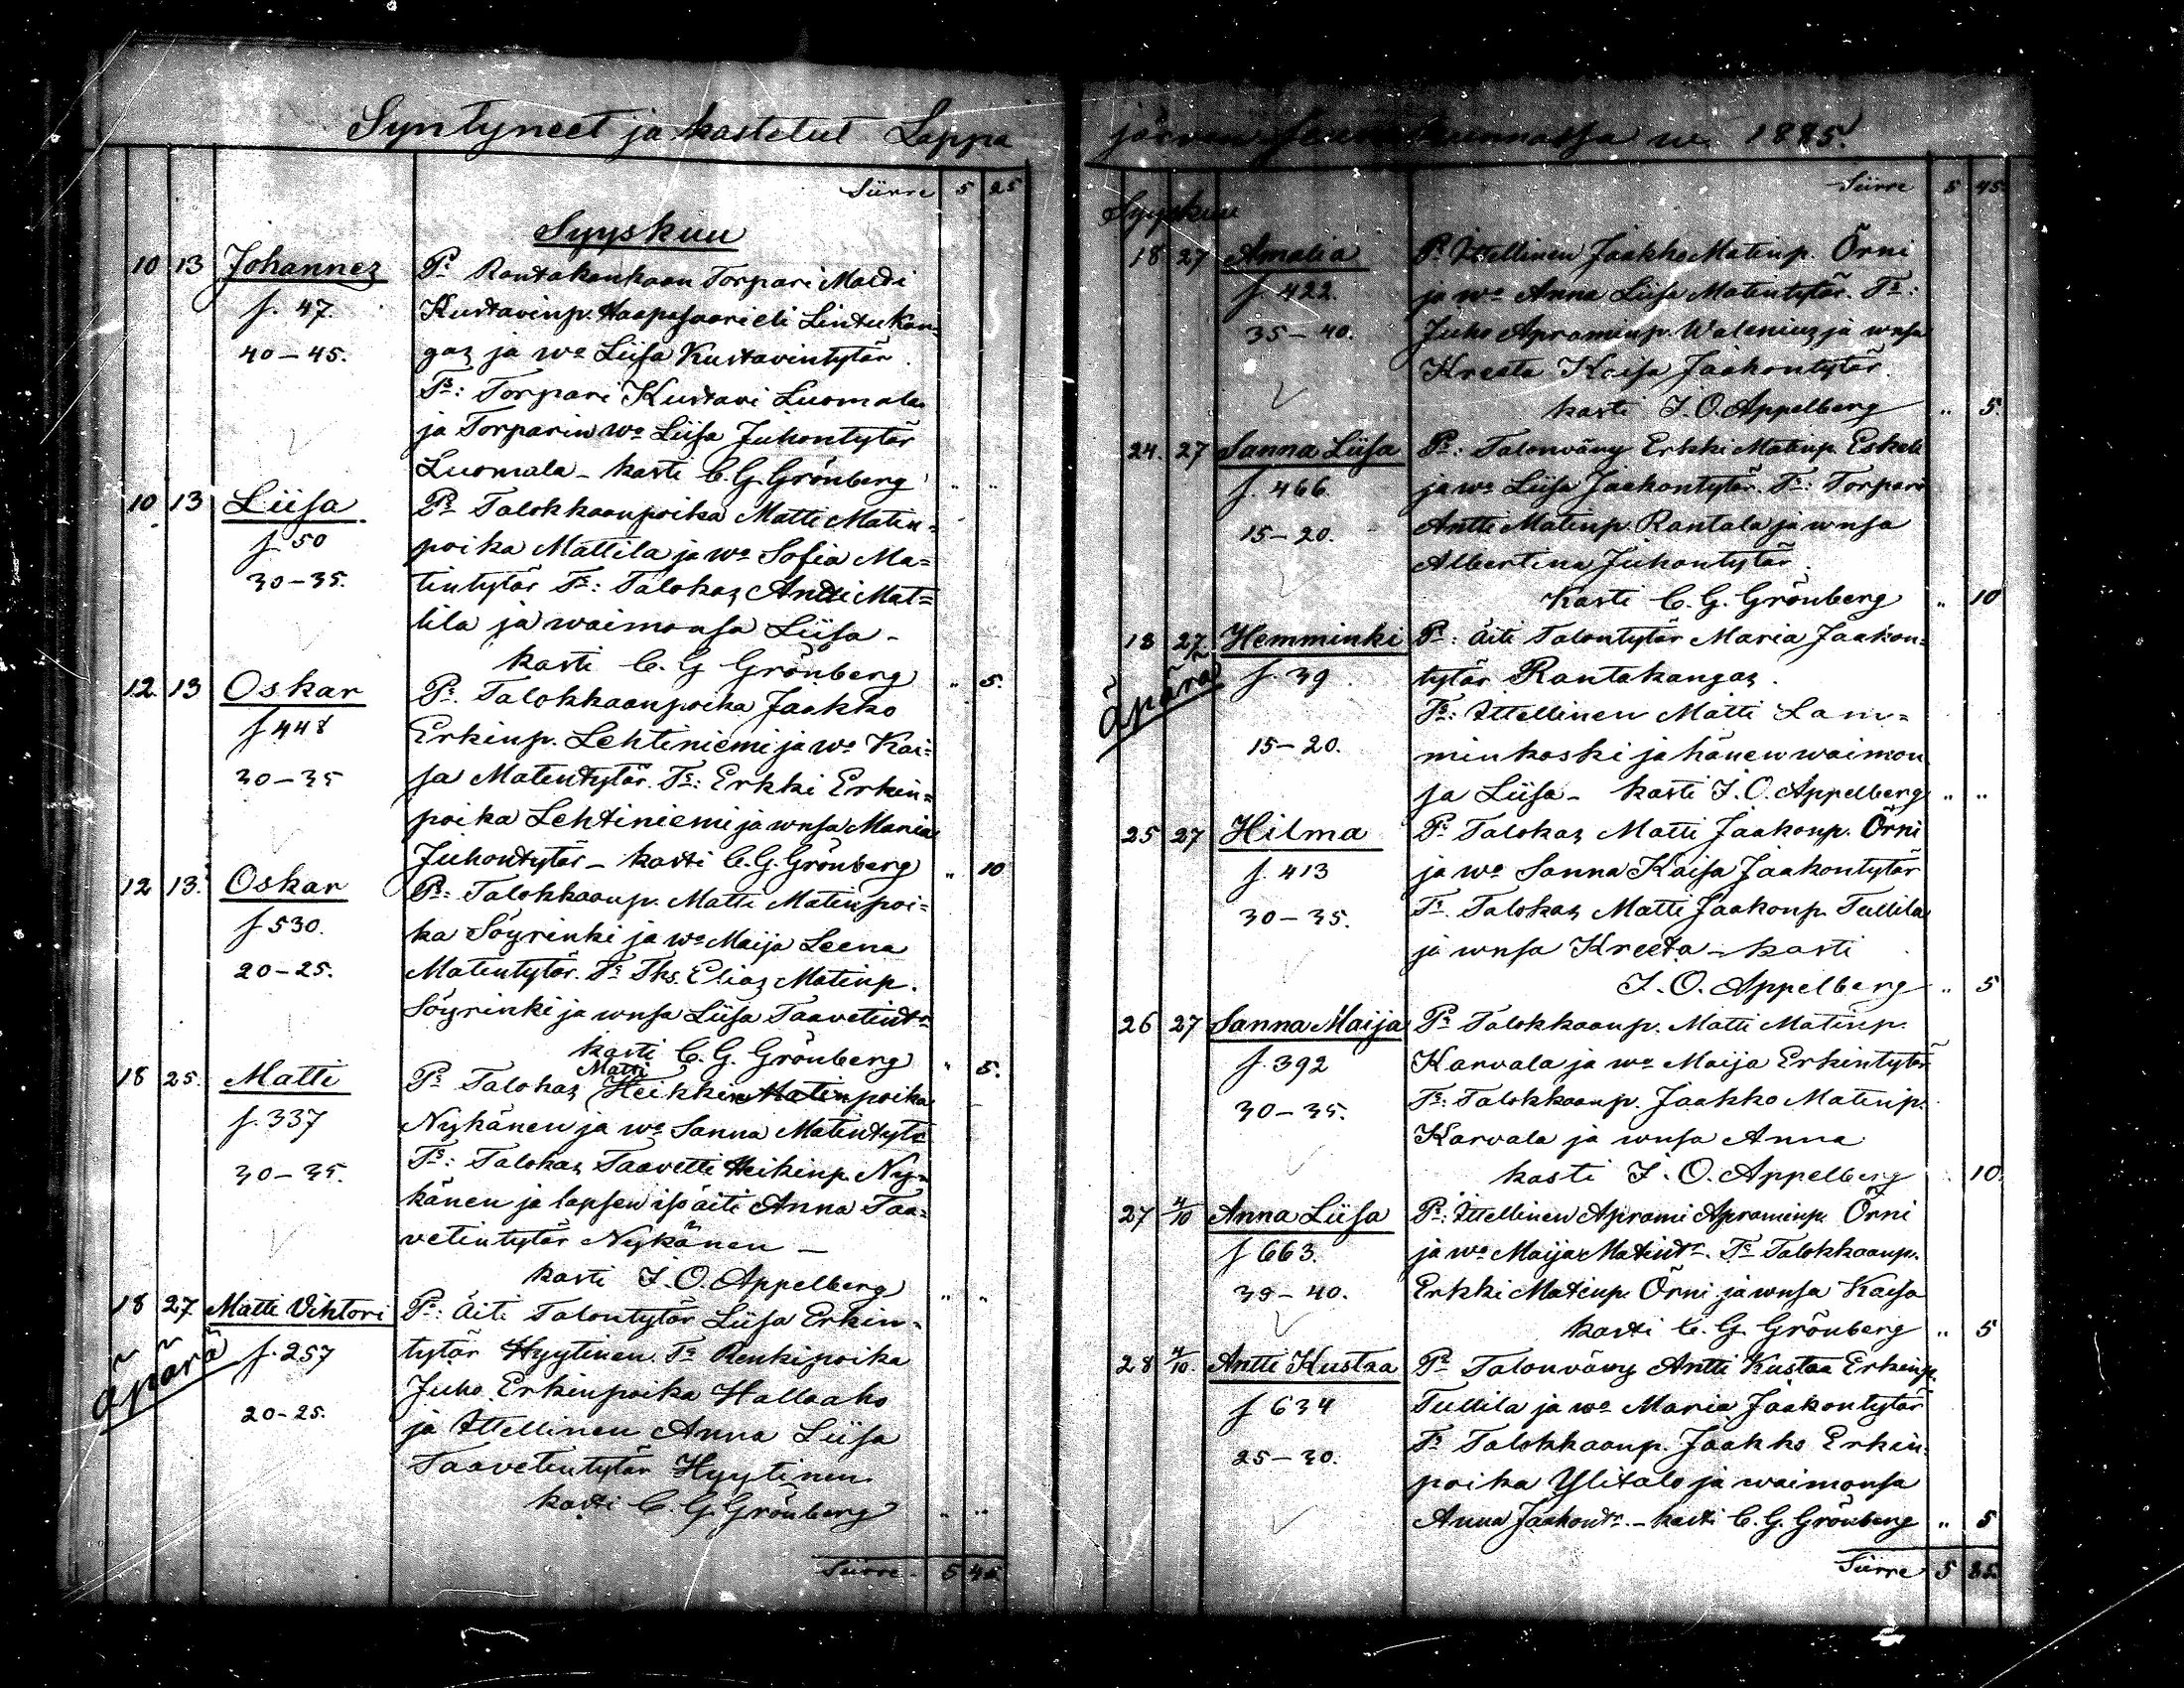 Syntyneet ja kastetut Lappa
Siirre 5 25
Syyskuu
10 13 Johannes Ps Rantakankaan Torpari Matti
f. 47. Kustavinp. Haapasaari eli Lintukan-
40-45. gas ja wo Liisa Kustavintytär.
Ts: Torpari Kustavi Luomala
ja Torparin wo Liisa Juhontytär
Luomala - kasti C. G. Grönberg " "
10 13 Liisa Ps Talokkaanpoika Matti Matin-
f. 50 poika Mattila ja wo Sofia Ma=
30-35. tintytär Ts: Talokas Antti Mat=
tila ja waimonsa Liisa -
kasti C. G Grönberg " 5.
12. 13 Oskar Ps. Talokkaanpoika Jaakko
f 448 Erkinp. Lehtiniemi ja wo Kai=
30-35 sa Matintytär. Ts: Erkki Erkin=
poika Lehtiniemi ja wnsa Maria
Juhontytär - kasti C. G. Grönberg " 10
12 13. Oskar Ps: Talokkaanp. Matti Matinpoi=
f 530. ka Söyrinki ja wo Maija Leena
20-25. Matintytär. Ts Tks. Elias Matinp.
Söyrinki ja wnsa Liisa Taavetintr
kasti C. G. Grönberg " 5.
Matti
18 25. Matti Ps Talokas Heikki Matinpoika
f. 337 Nykänen ja wo Sanna Matintytr
30-35. Ts: Talokas Taavetti Heikinp. Ny-
känen ja lapsen iso äiti Anna Taa=
vetintytär Nykänen -
kasti J. O. Appelberg " "
18 27 Matti Vihtori Ps: Äiti Talontytär Liisa Erkin-
äpärä f. 257 tytär Hyytinen. Ts Renkipoika
Juho Erkinpoika Hallaaho
20-25. ja Ittellinen Anna Liisa
Taavetintytär Hyytinen
kasti C. G. Grönberg " "
Siirre 5 45.
järven seurakunnassa w. 1885.
Siirre 5 45.
Syyskuu
18 27 Amalia Ps Ittellinen Jaakko Matinp. Örni
f. 422. ja wo Anna Liisa Matintytär. Ts:
35-40. Juho Apraminp. Walenius ja wnsa
Kreeta Kaisa Jaakontytär.
kasti J. O. Appelberg " 5.
24. 27 Sanna Liisa Ps: Talonvävy Erkki Matinp. Eskeli
f. 466. ja wo Liisa Jaakontytär. Ts: Torpari
15-20. Antti Matinp. Rantala ja wnsa
Albertina Juhontytär.
kasti C. G. Grönberg " 10
13 27 Hemminki Ps: Äiti Talontytär Maria Jaakon-
äpärä f. 39. tytär Rantakangas.
Ts: Ittellinen Matti Lam=
15-20. minkoski ja hänen waimon
sa Liisa - kasti J. O. Appelberg " "
25 27 Hilma Ps Talokas Matti Jaakonp. Örni
f. 413 ja wo Sanna Kaisa Jaakontytär
30-35. Ts. Talokas Matti Jaakonp. Tullila
ja wnsa Kreeta - kasti
J. O. Appelberg " 5
26 27 Sanna Maija Ps Talokkaanp. Matti Matinp.
f. 392 Karvala ja wo Maija Erkintytär
30-35. Ts: Talokkaanp. Jaakko Matinp.
Karvala ja wnsa Anna
kasti J. O. Appelberg 10.
27 4/10 Anna Liisa Ps: Ittellinen Aprami Apraminp. Örni
f 663. ja wo Maija Matintr. Ts Talokkaanp.
35-40. Erkki Matinp. Örni ja wnsa Kaisa
kasti C. G. Grönberg " 5
28 4/10. Antti Kustaa Ps Talonvävy Antti Kustaa Erkinp.
f 634 Tullila ja wo Maria Jaakontytär
25-30. Ts Talokkaanp. Jaakko Erkin-
poika Ylitalo ja waimonsa
Anna Jaakontr. - kasti C. G. Grönberg " 5
Siirre 5 85.